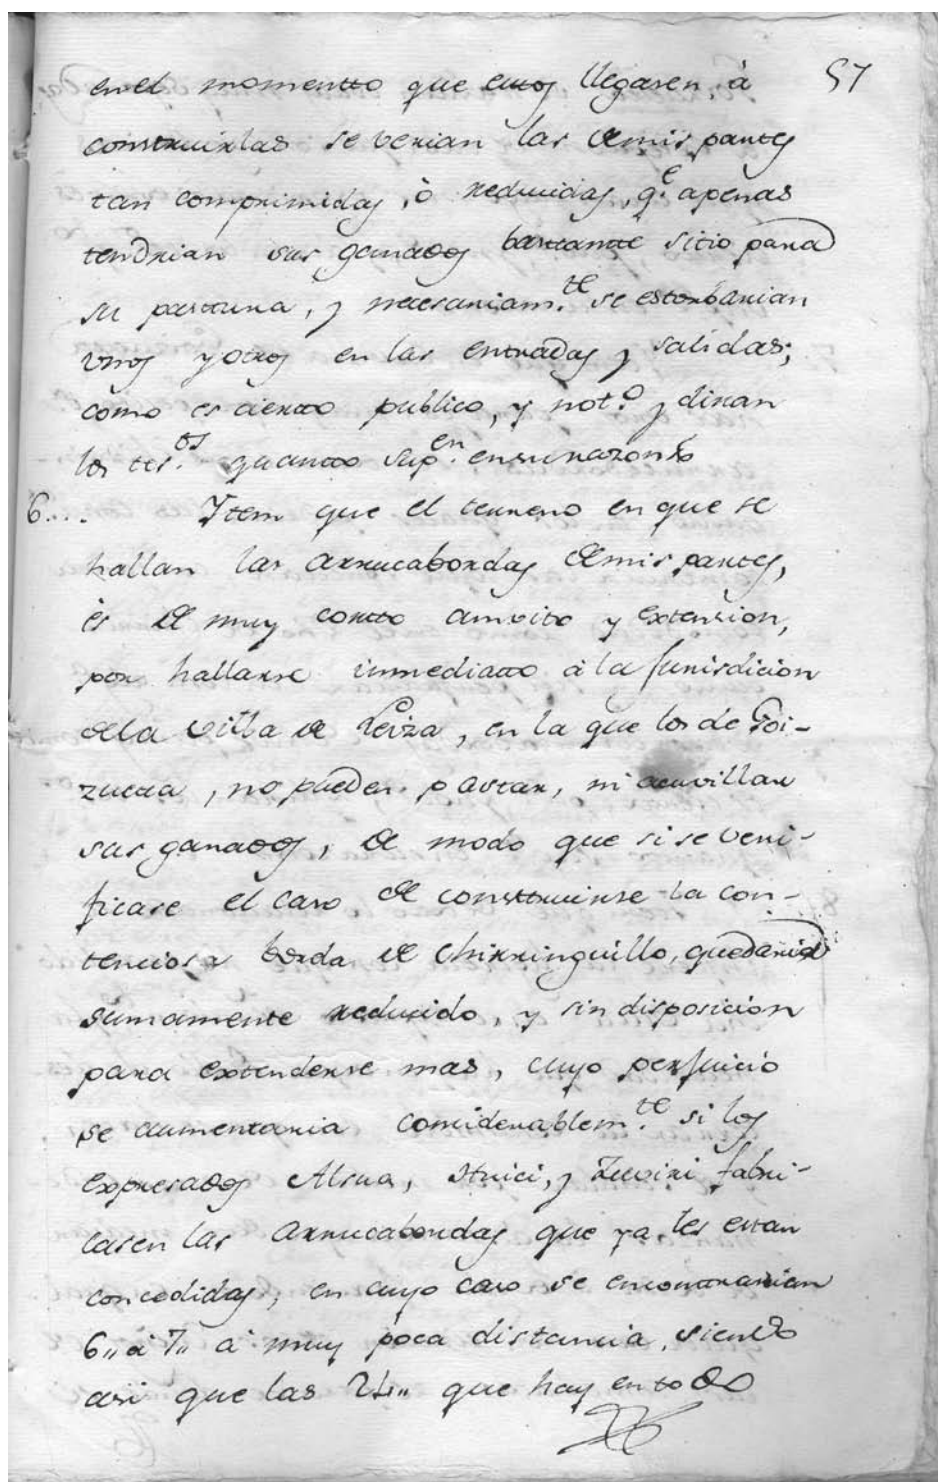 57
en el momentto que estos llegasen, à
construirlas se verian las de mis partes
tan comprimidas, ò reducidas, q.e apenas
tendrian sus ganados bastante sitio para
su pastura, y necesariam.te se estorbarian
unos y otros en las entradas y salidas;
como es ciertto publico, y not.o y diran
los tes.os quantto sup.en en su razon &
6.... Ytem que el terreno en que se
hallan las arrucabordas de mis partes,
ès de muy cortto amvito y extension,
por hallarse inmediatto à la Jurisdicion
de la villa de Leiza, en la que los de Goi-
zuetta, no pueden pastar, ni acuvillar
sus ganados, de modo que si se veri-
ficase el caso de construirse la con-
tenciosa borda de Chirringuillo, quedaria
sumamente reducido, y sin disposicion
para extenderse mas, cuyo perjuicio
se aumentaria considerablem.te si los
expresados Alsua, y fabri-
casen las arrucabordas que ya les estan
concedidas, en cuyo caso se encontrarian
6,, à 7,, à muy poca distancia, siendo
asi que las 24,, que hay en todo